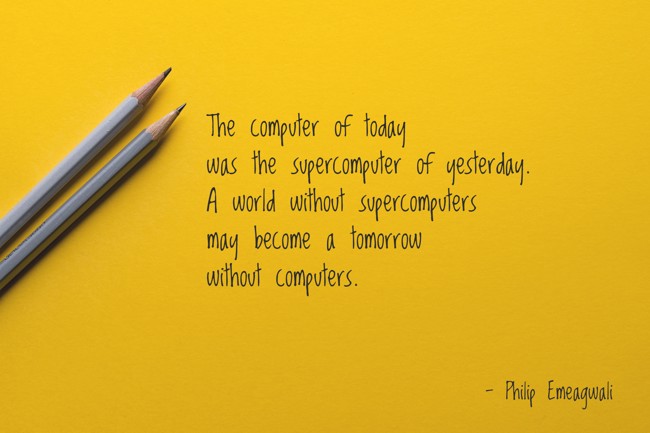 The computer of today
was the supercomputer of yesterday.
A world without supercomputers
may become a tomorrow
without computers.
- Philip Emeagwali